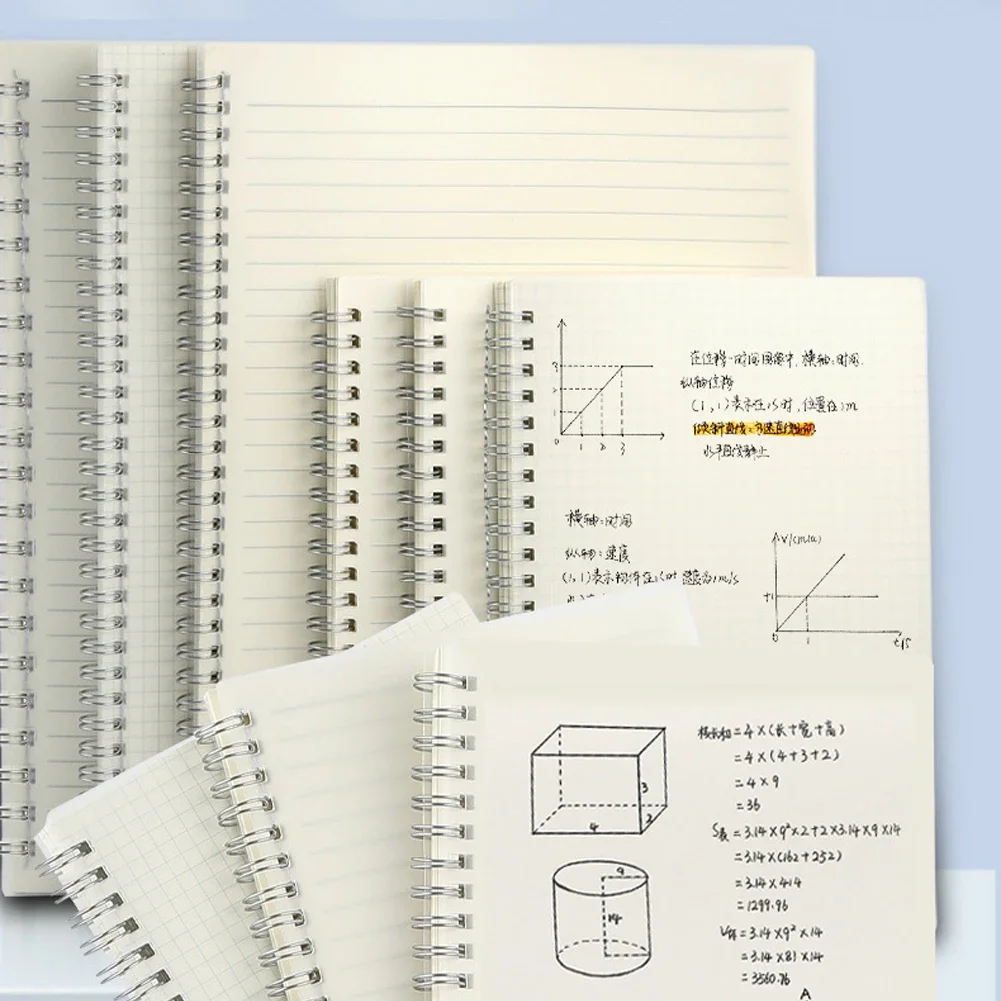 3
2
1
0
1
2
3
在位移-时间图像中，横轴：时间.
纵轴位移
(1,1)表示在1s时，位置在1m
倾斜直线：匀速直线运动
水平直线静止
横轴：时间
纵轴：速度
(1,1)表示物体在1s时速度为1m/s
V/(m/s)
+1
0
1
t/s
3
2
4
棱长和=4×(长+宽+高)
=4×(4+3+2)
=4×9
=36
S表=3.14×9²×2+2×3.14×9×14
=3.14×(162+252)
=3.14×414
=1299.96
V柱=3.14×9²×14
=3.14×81×14
=3560.76
9
14
A